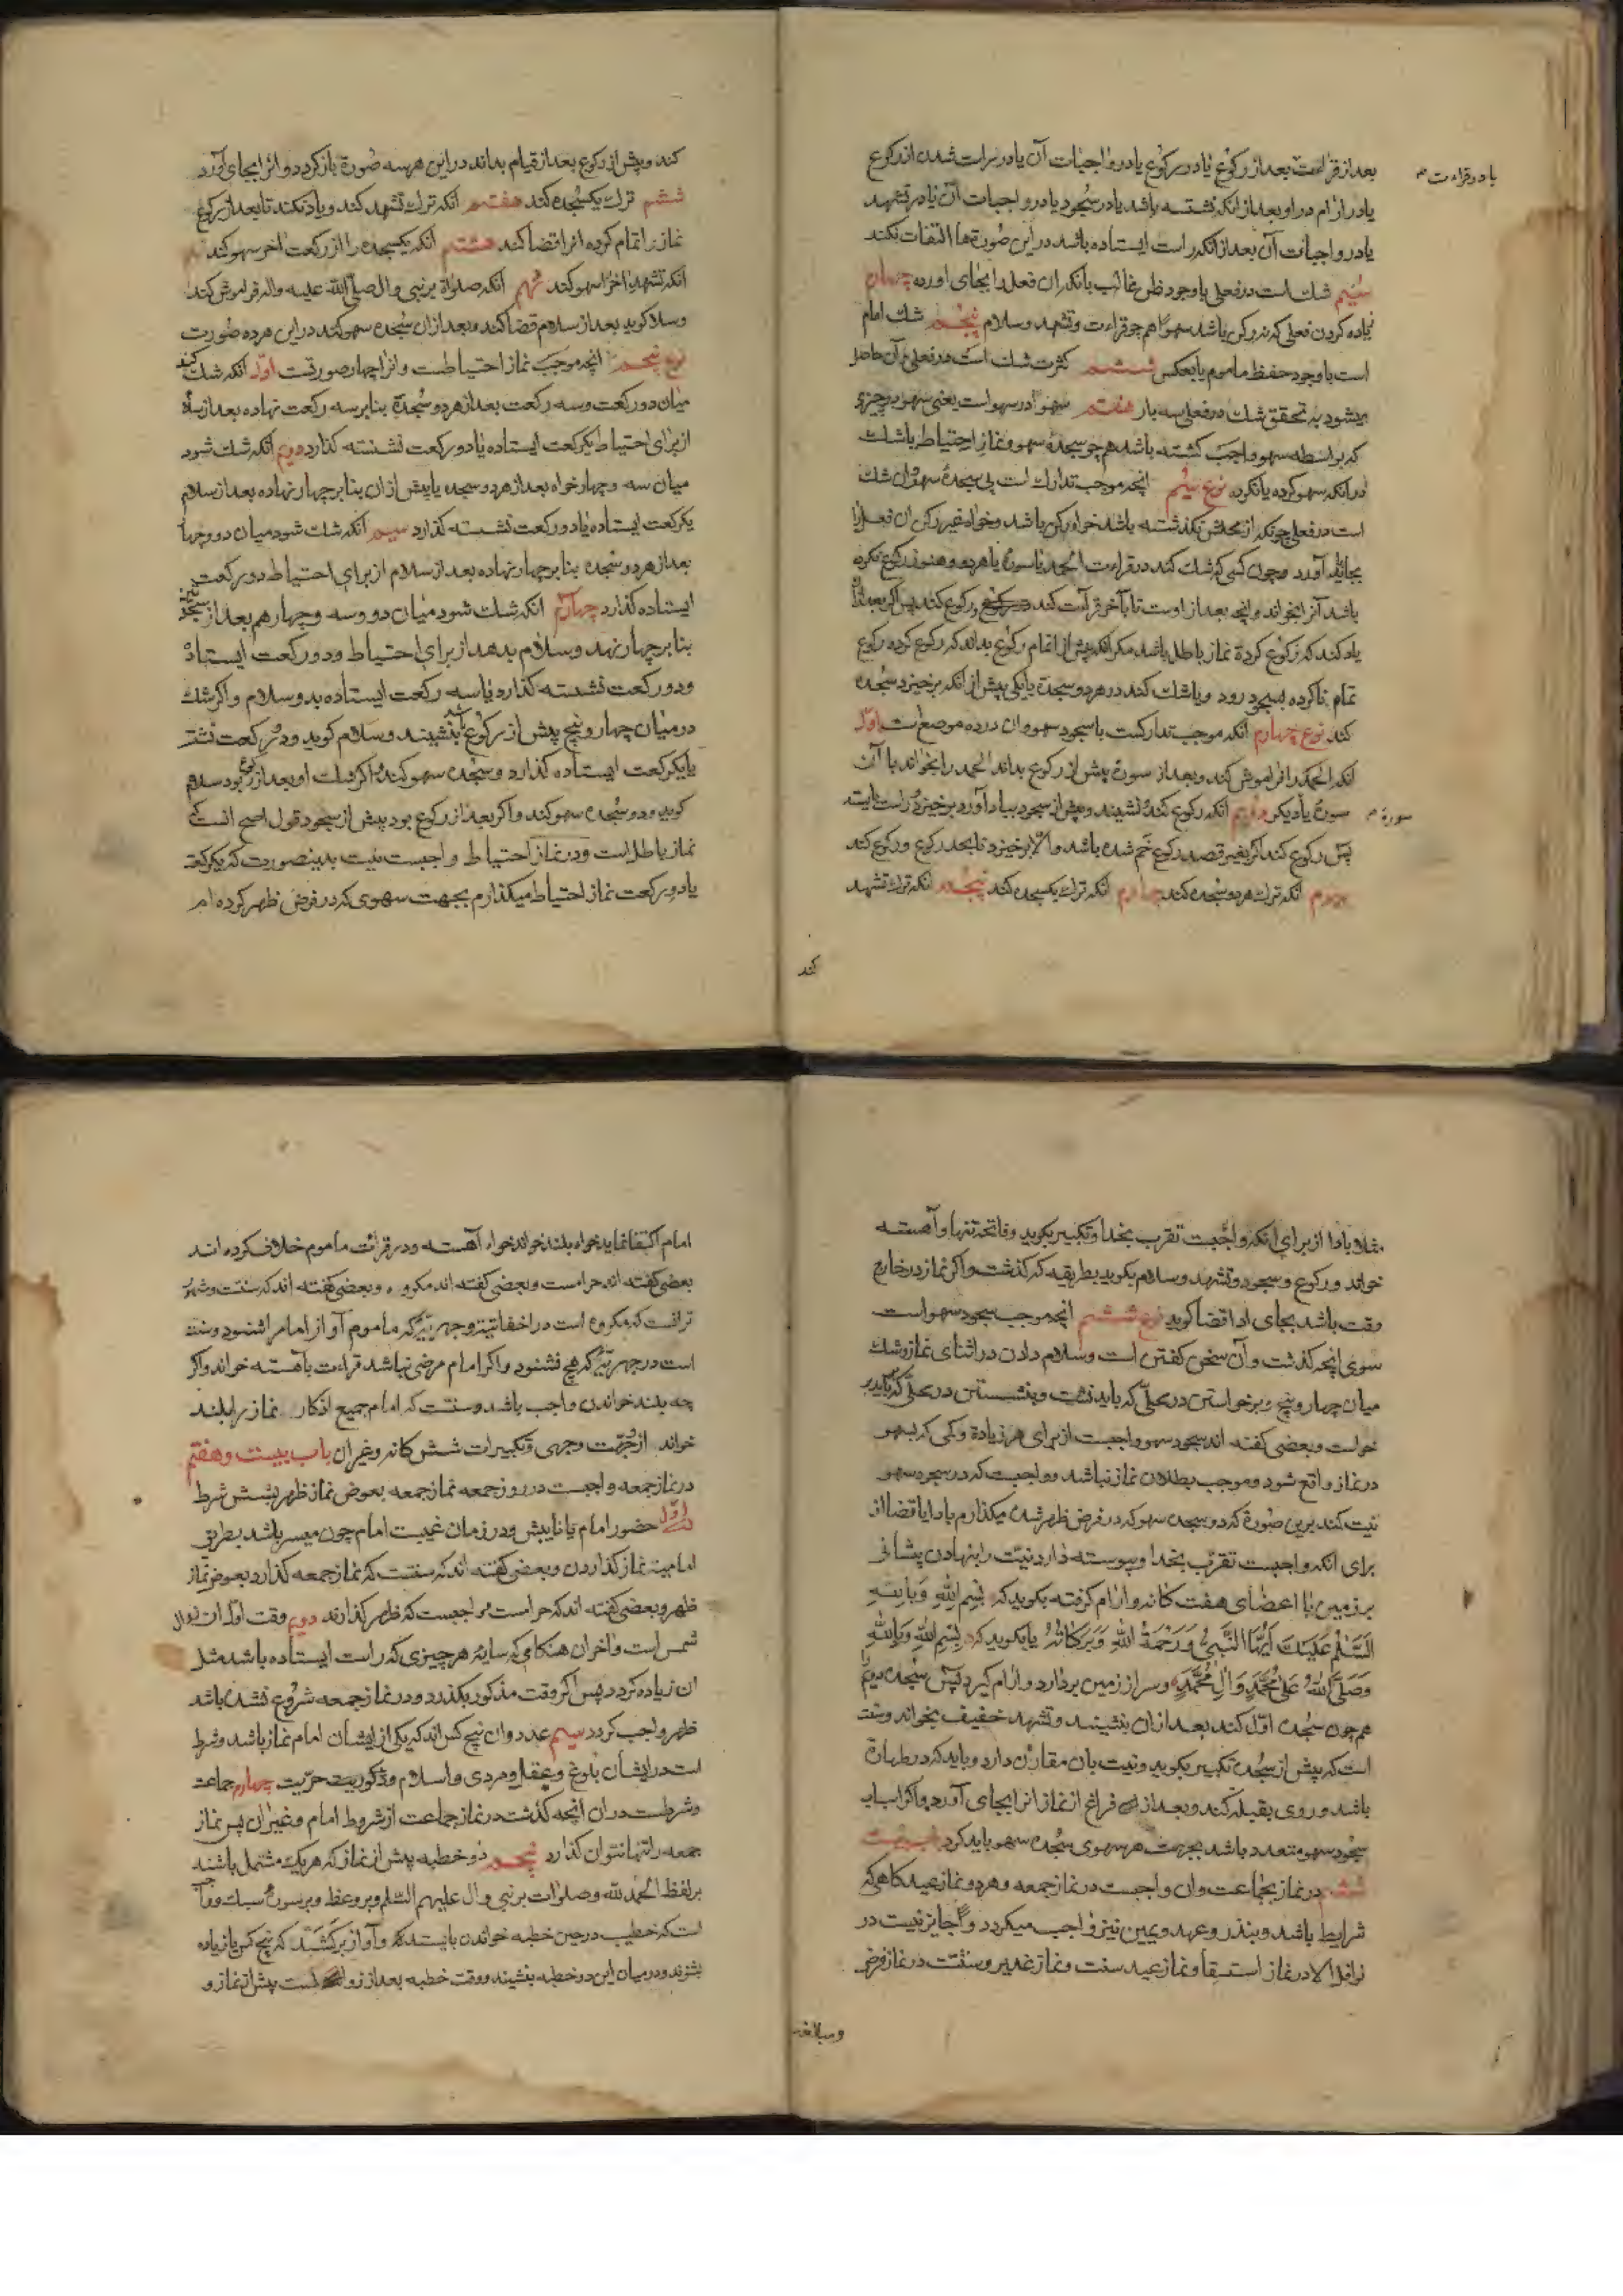 بعد از قراءت بعد از رکوع یا در رکوع یا در واجبات آن یا در راست شدن از رکوع
یا در قراءت
یا در ارام در او بعد از انکه نشسته باشد یا در سجود یا در واجبات آن یا در تشهد
یا در واجبات آن بعد از انکه راست ایستاده باشد در این صورةها التفات نکند
سیم شك است در فعلی با وجود ظن غالب بانکه ان فعل را بجای اورده چهارم
زیاده کردن فعلی که نه رکن باشد سهوًا همچو قراءت و تشهد وسلام پنجم شك امام
است با وجود حفظ ماموم یا بعکس ششم کثرت شك است در فعلی و آن حاصل
میشود به تحقق شك در فعلی سه بار هفتم سهو در سهو است یعنی سهو در چیزی
که بواسطه سهو واجب کشته باشد همچو سجدهٔ سهو ونماز احتیاط یا شك
در آنکه سهو کرده یا نکرده نوع سیم انچه موجب تدارك است بی سجدهٔ سهو و ان شك
است در فعلی چونکه از محلش نکذشته باشد خواه رکن باشد وخواه غیر رکن ان فعل را
بجای آورد وچون کسی که شك کند در قراءت الحمد یا سورة یا هر دو وهنوز رکوع نکرده
باشد آنرا بخواند وانچه بعد از اوست تا بآخر قراءت کند ورکوع کند پس اکر بعد از آن
یاد کند که رکوع کردة نماز باطل باشد مکر انکه پیش از اتمام رکوع بداند که رکوع کرده رکوع
تمام ناکرده بسجود رود ویا شك کند در هر دو سجدة یا یکی پیش از انکه برخیزد سجده
کند نوع چهارم انکه موجب تدارکست با سجود سهو وان در ده موضع است اوّل
انکه الحمد را فراموش کند وبعد از سورة پیش از رکوع بداند الحمد را بخواند با آن
سورة یا دیکر دویم انکه رکوع کند نشیند وپیش از سجود بیاد آورد برخیزد راست بایستد
سورة
پس رکوع کند اکر بغیر قصد رکوع خم شده باشد والا برخیزد تا بحد رکوع ورکوع کند
سیم انکه ترك هر دو سجده کند چهارم انکه ترك یکسجده کند پنجم انکه ترك تشهد
کند
کند وپیش از رکوع بعد از قیام بداند در این هر سه صورة باز کردد وانرا بجای آورد
ششم ترك یکسجده کند هفتم انکه ترك تشهد کند ویاد نکند تا بعد از رکوع
نماز را تمام کرده انرا قضا کند هشتم انکه یکسجده را از رکعت اخر سهو کند نهم
انکه تشهد اخر را سهو کند دهم انکه صلواة بر نبی وال صلی الله علیه واله فراموش کند
وسلام کوید بعد از سلام قضا کند وبعد از ان سجده سهو کند در این هر ده صورت
نوع پنجم انچه موجب نماز احتیاطست وانرا چهار صورتست اوّل انکه شك کند
میان دو رکعت وسه رکعت بعد از هر دو سجدة بنا بر سه رکعت نهاده بعد از سلام
از برای احتیاط یکرکعت ایستاده یا دو رکعت نشسته کذارد دویم انکه شك شود
میان سه وچهار خواه بعد از هر دو سجده یا پیش از ان بنا بر چهار نهاده بعد از سلام
یکرکعت ایستاده یا دو رکعت نشسته کذارد سیم انکه شك شود میان دو وچهار
بعد از هر دو سجده بنا بر چهار نهاده بعد از سلام از برای احتیاط دو رکعت
ایستاده کذارد چهارم انکه شك شود میان دو وسه وچهار هم بعد از سجده
بنا بر چهار نهد وسلام بدهد از برای احتیاط ودو رکعت ایستاده
ودو رکعت نشسته کذارد یا سه رکعت ایستاده بدو سلام واکر شك
در میان چهار وپنج پیش از رکوع باشد بنشیند وسلام کوید ودو رکعت نشسته
یا یکرکعت ایستاده کذارد وسجده سهو کند واکر شك او بعد از رکوع بود سلام
کوید ودو سجده سهو کند واکر بعد از رکوع بود پیش از سجود قول اصح انست که
نماز باطل است ودر نماز احتیاط واجبست نیت بدینصورت که یکرکعت
یا دو رکعت نماز احتیاط میکذارم بجهت سهوی که در فرض ظهر کرده ام
مثلا بادا از برای انکه واجبست تقرب بخدا وتکبیر بکوید وفاتحه تنها وآهسته
خواند ورکوع وسجود وتشهد وسلام بکوید بطریقه که کذشت واکر نماز در خارج
وقت باشد بجای ادا قضا کوید نوع ششم انچه موجب سجود سهو است
سوی انچه کذشت وآن سخن کفتن است وسلام دادن در اثنای نماز وشك
میان چهار وپنج وبرخواستن در محلّی که باید نشست وبنشستن در محلّی که باید بر
خواست وبعضی کفته اند سجود سهو واجبست از برای هر زیادة وکمی که بسهو
در نماز واقع شود وموجب بطلان نماز نباشد وواجبست که در سجود سهو
نیت کند برین صورة که دو سجده سهو که در فرض ظهر شده میکذارم بادا یا قضا از
برای انکه واجبست تقرب بخدا وپیوسته دارد نیّت را بنهادن پیشانی
بر زمین با اعضای هفت کانه وارام کرفته بکوید که بِسْمِ اللّٰهِ وَبِاللّٰهِ
اَلسَّلٰمُ عَلَیْكَ اَیُّهَا النَّبِیُّ وَرَحْمَةُ اللّٰهِ وَبَرَکاتُهُ یا بکوید که بِسْمِ اللّٰهِ وَبِاللّٰهِ
وَصَلَّی اللّٰهُ عَلٰی مُحَمَّدٍ وَاٰلِ مُحَمَّدٍ وسر از زمین بردارد وارام کیرد پس سجده دویم را
همچون سجده اوّل کند بعد از ان بنشیند وتشهد خفیف بخواند وسنت
است که پیش از سجده تکبیر بکوید ونیت بان مقارن دارد وباید که در طهارة
باشد وروی بقبله کند وبعد از فراغ از نماز انرا بجای آورد واکر اسباب
سجود سهو متعدد باشد بجهت هر سهوی سجده سهو باید کرد باب بیست
ششم در نماز بجماعت وان واجبست در نماز جمعه وهر دو نماز عید کاهی که
شرایط باشد وبنذر وعهد ویمین نیز واجب میکردد وجایز نیست در
نوافل الا در نماز استسقا ونماز عید سنت ونماز غدیر وسنّت در نماز فرض
ومبالغه
امام اکتفا نماید خواه بلند خواند خواه آهسته ودر قرائت ماموم خلاف کرده اند
بعضی کفته اند حرامست وبعضی کفته اند مکروه وبعضی کفته اند که سنّت ومشهور
تر انست که مکروه است در اخفاتیه وجهریّه که ماموم آواز امام را شنود وسنت
است در جهریّه که هیچ نشنود واکر امام مرضی نباشد قراءت بآهسته خواند واکر
چه بلند خواندن واجب باشد وسنّت که امام جمیع اذکار نماز را بلند
خواند از وجهت وجهی وتکبیرات شش کانه وغیر ان باب بیست وهفتم
در نماز جمعه واجبست در روز جمعه نماز جمعه بعوض نماز ظهر بشش شرط
اوّل حضور امام یا نایبش ودر زمان غیبت امام چون میسر باشد بطریق
امامیه نماز کذاردن وبعضی کفته اند که سنّتست که نماز جمعه کذارد بعوض نماز
ظهر وبعضی کفته اند که حرامست وواجبست که ظهر کذارند دویم وقت اوّل ان زوال
شمس است واخر ان هنکامی که سایهٔ هر چیزی که راست ایستاده باشد مثل
ان زیاده کردد پس اکر وقت مذکور بکذرد ودر نماز جمعه شروع نشده باشد
ظهر واجب کردد سیم عدد وان پنج کس اند که یکی از ایشان امام نماز باشد وشرط
است در ایشان بلوغ وعقل ومردی واسلام وذکوریت حرّیت چهارم جماعت
وشرطست در ان انچه کذشت در نماز جماعت از شروط امام وغیر ان پس نماز
جمعه را تنها نتوان کذارد پنجم دو خطبه پیش از نماز که هر یك مشتمل باشند
بر لفظ الحمد لله وصلوات بر نبی وال علیهم السّلم وبر وعظ وبر سورهٔ سبك وواجب
است که خطیب در حین خطبه خواندن بایستد وآواز بر کشد که پنج کس یا زیاده
بشنوند ودر میان این دو خطبه بنشیند ووقت خطبه بعد از زوال است پیش از نماز و